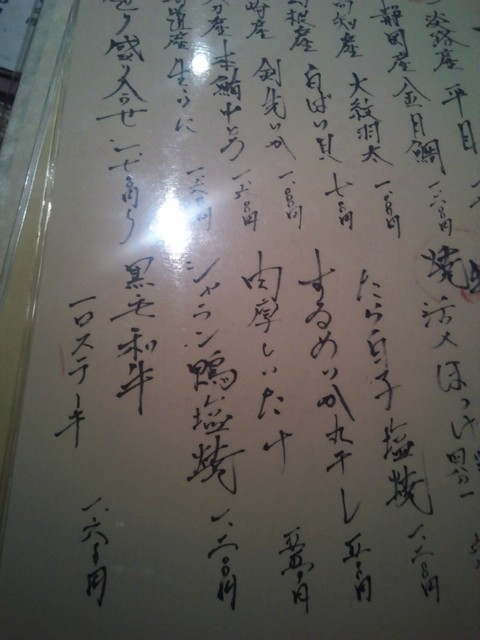 淡路産 平目
静岡産 金目鯛 一、六〇〇円
高知産 大紋羽太 一、八〇〇円
島根産 白ばい貝 七〇〇円
剣先いか 一、八〇〇円
産 本鮪中とろ 一、六〇〇円
道産 生うに 一、六〇〇円
盛り合せ 二千円より
焼
活〆ほっけ 四分一
たら白子塩焼 一、二〇〇円
するめいか丸干し 五〇〇円
肉厚しいたけ 五五〇円
シャラン鴨塩焼 一、二〇〇円
黒毛和牛
一口ステーキ 一、六〇〇円